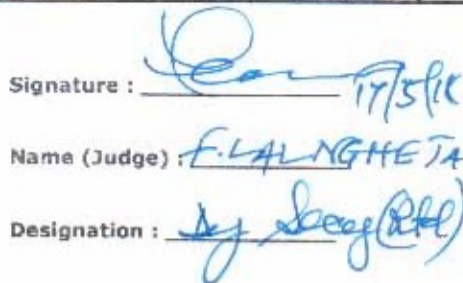 Signature : 17/5/18
Name (Judge) : F. LALNGHETA
Designation : Dy Secy (Rtd)